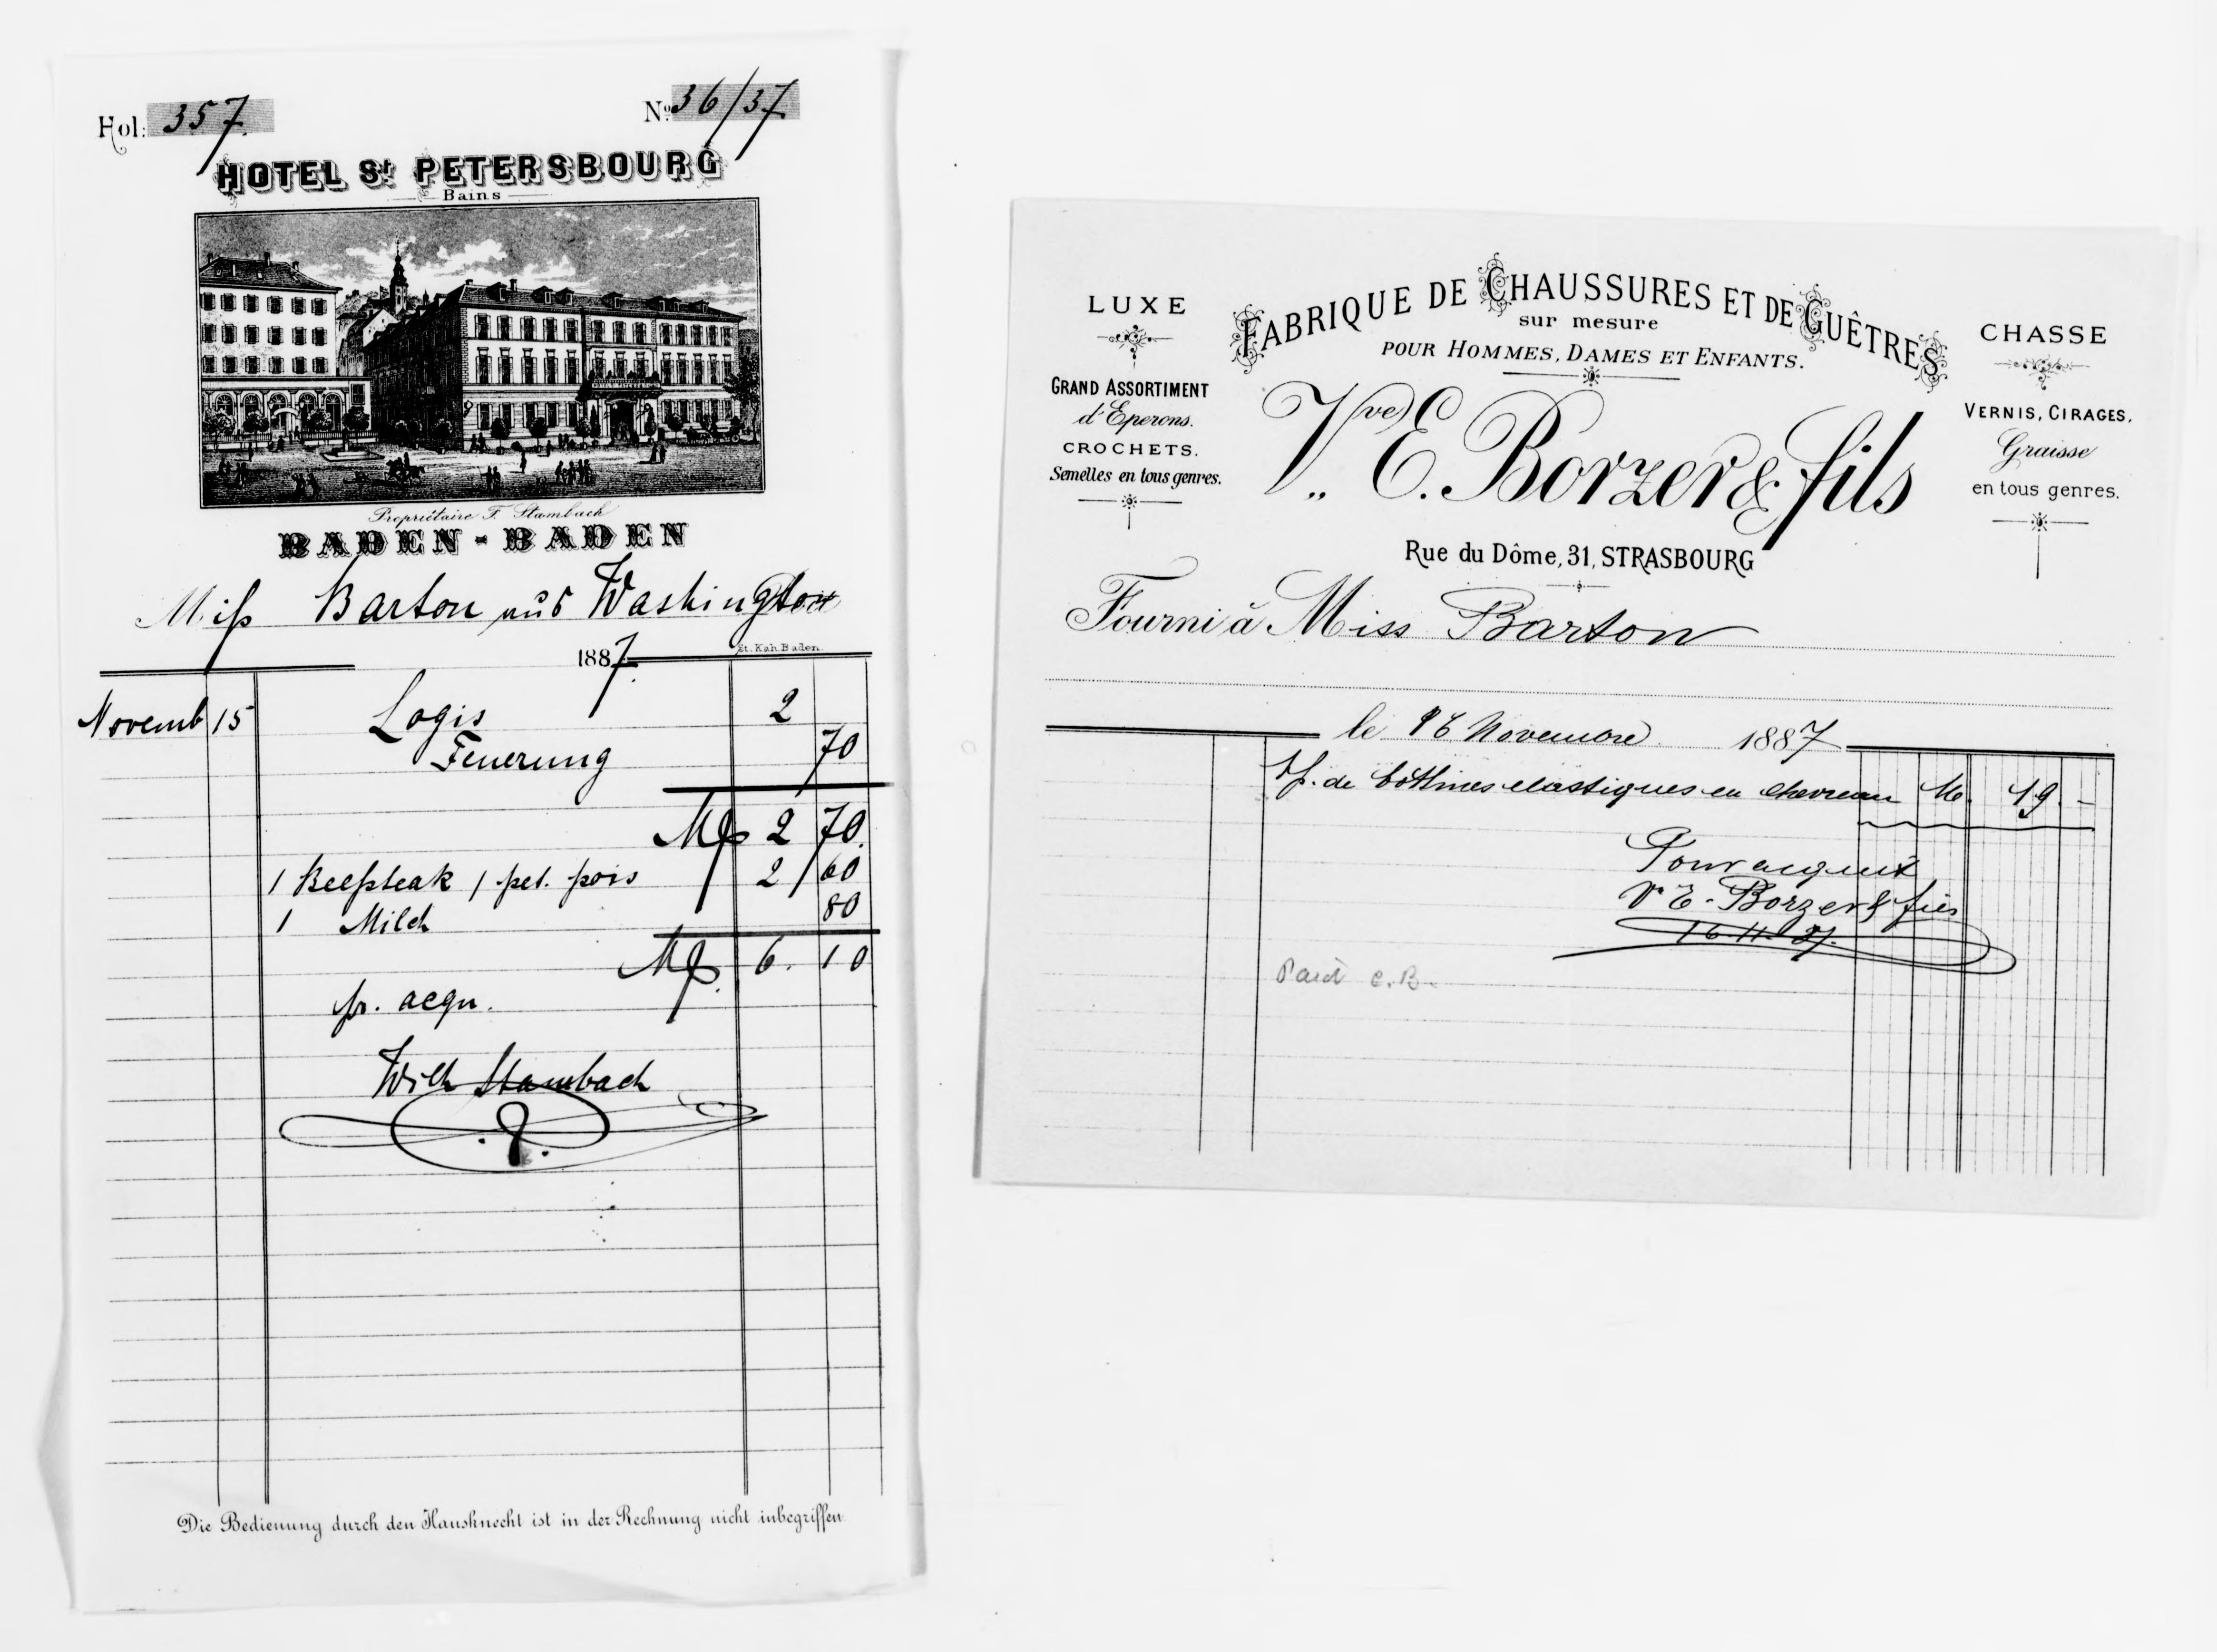 Fol: 357.
No. 36/37
HOTEL St. PETERSBOURG
Bains
Propriétaire F. Stambach
BADEN-BADEN
Miss Barton aus Washington
1887.
Novemb 15 Logis 2
Feuerung 70
Mk 2 70.
1 Beefsteak 1 pet. pois 2 60
1 Milch 80
Mk. 6. 10
pr. acqu.
Wilh Stambach
Die Bedienung durch den Hausknecht ist in der Rechnung nicht inbegriffen
LUXE
GRAND ASSORTIMENT
d'Eperons.
CROCHETS.
Semelles en tous genres.
FABRIQUE DE CHAUSSURES ET DE GUÊTRES
sur mesure
POUR HOMMES, DAMES ET ENFANTS.
Vve E. Borzer & fils
Rue du Dôme, 31, STRASBOURG
CHASSE
VERNIS, CIRAGES,
Graisse
en tous genres.
Fourni à Miss Barton
le 16 Novembre 1887
1 p. de bottines elastiques en chevreau M. 19. -
Pour acquit
Ve E. Borzer & fils
16.11.87.
Paid C.B.